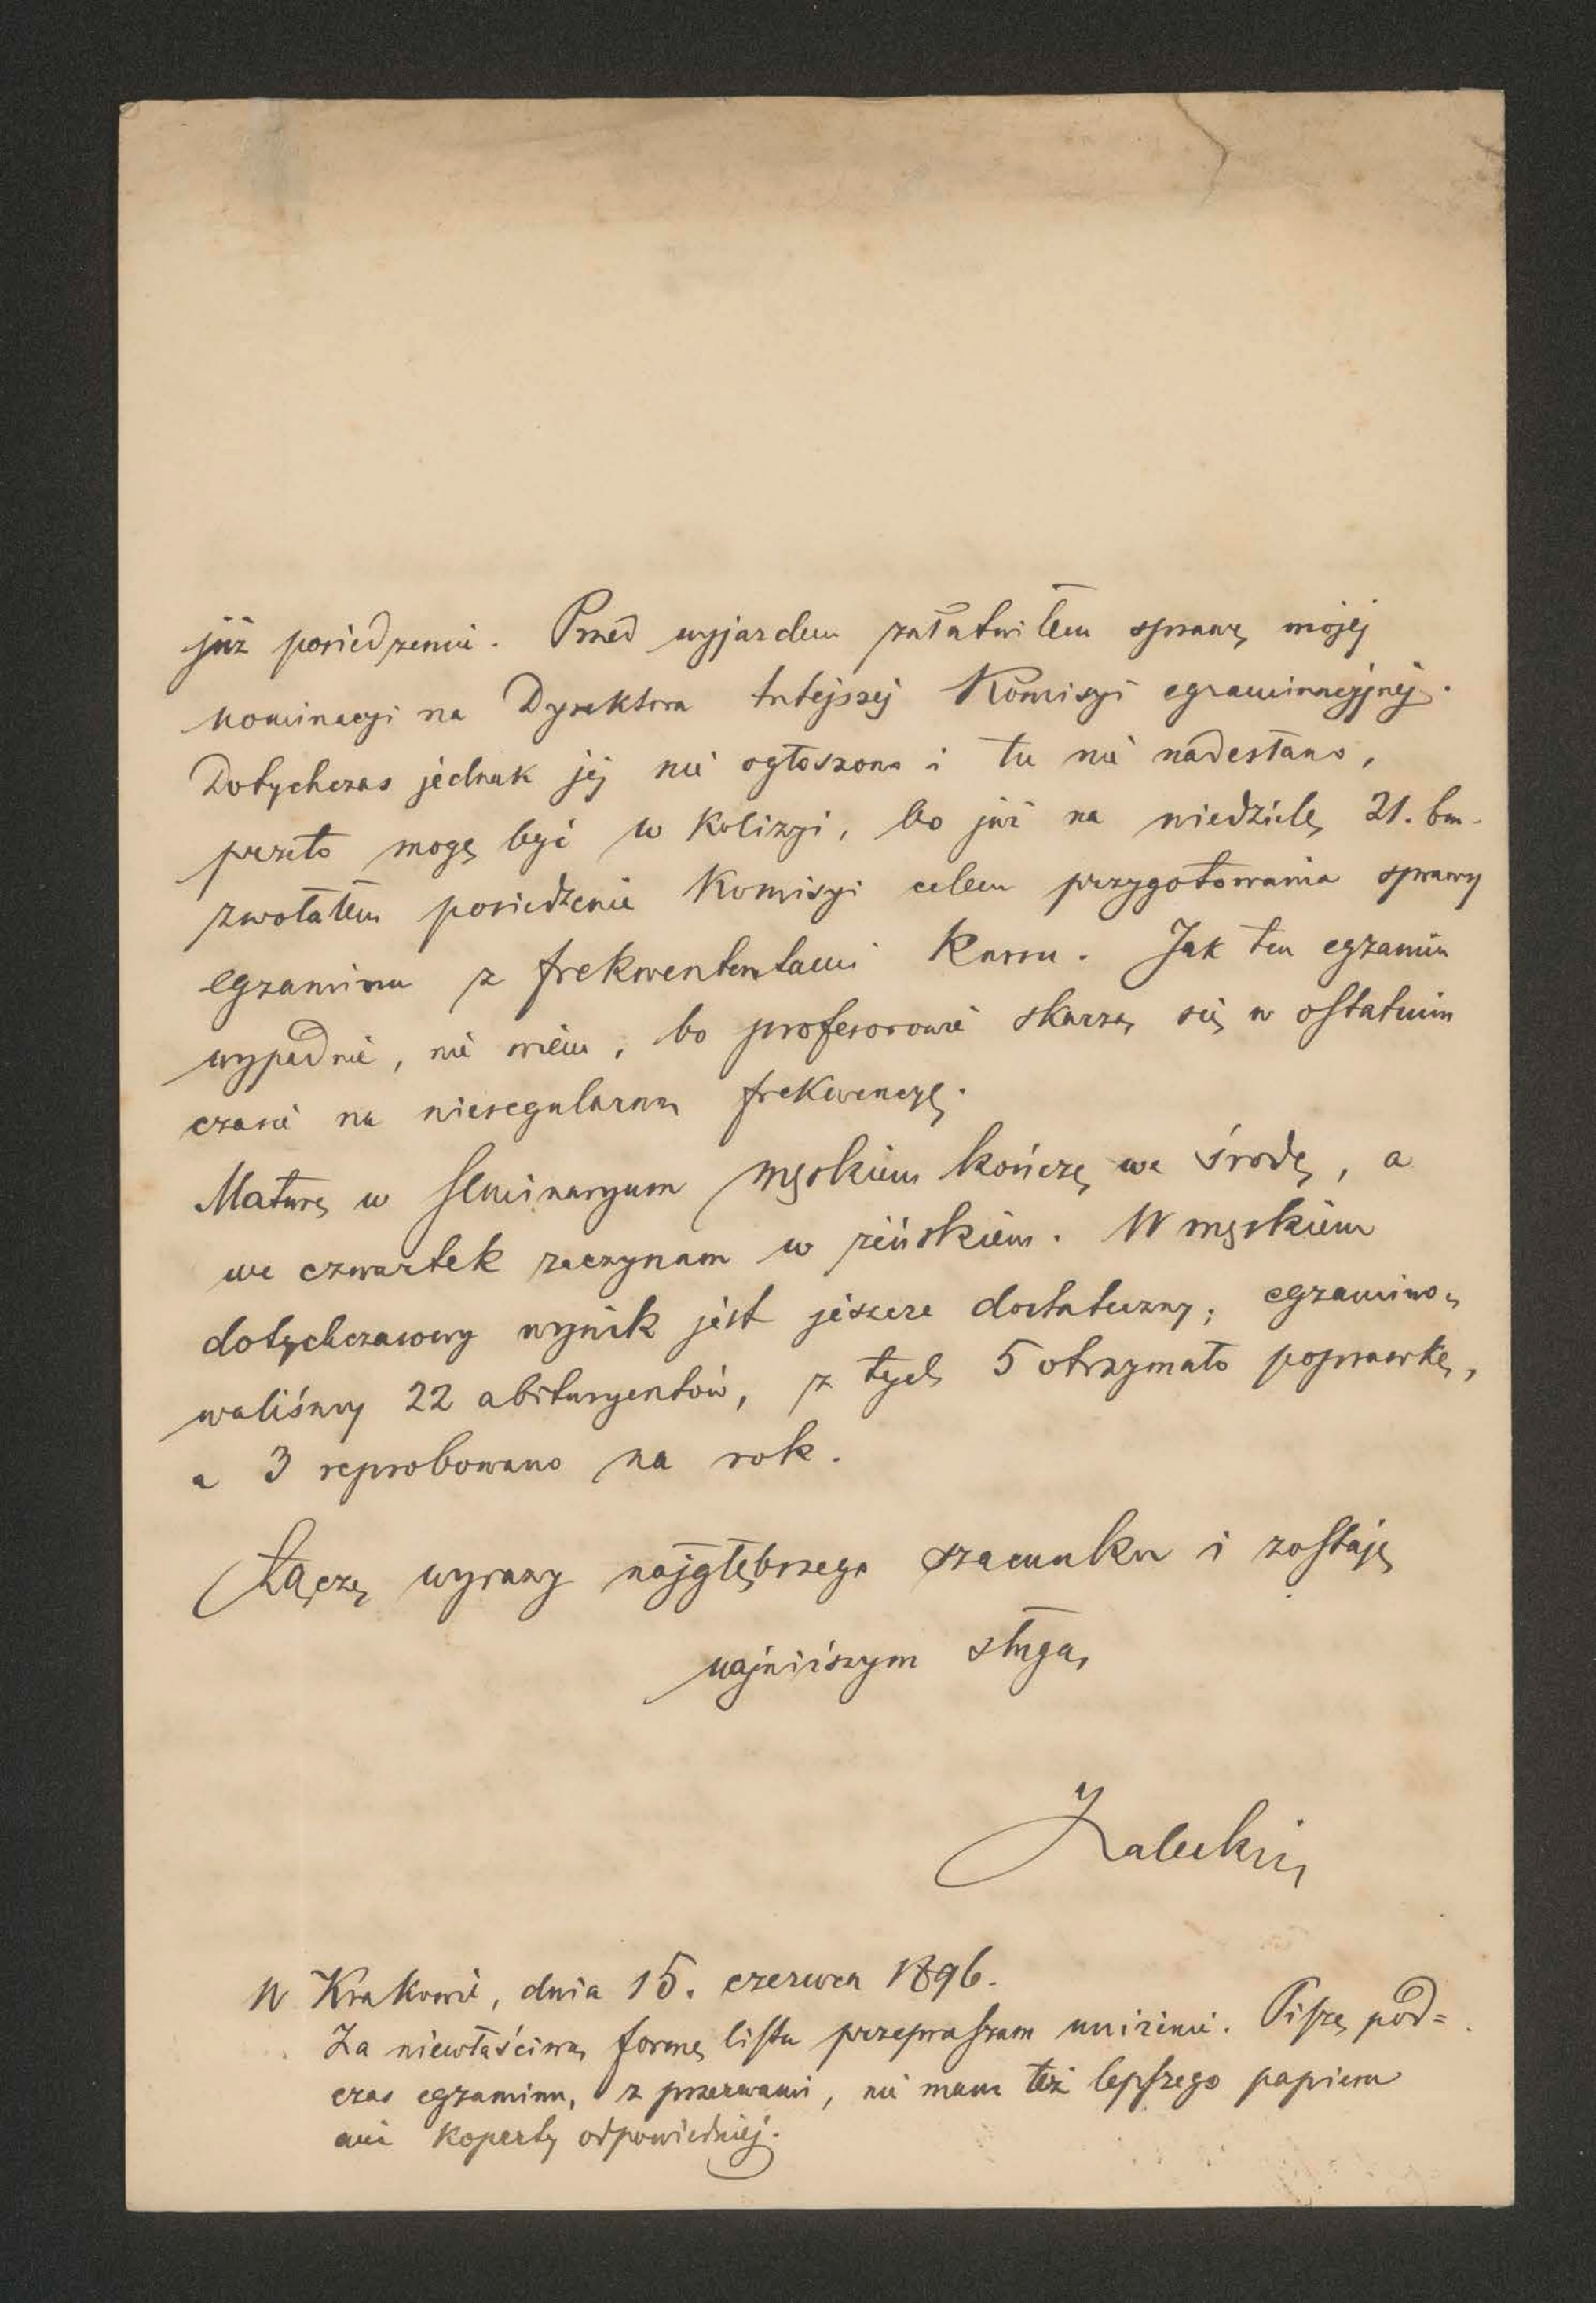 już posiedzenie. Przed wyjazdem załatwiłem sprawę mojej
nominacyi na Dyrektora tutejszej Komisyi egzaminacyjnej.
Dotychczas jednak jej nie ogłoszono i tu nie nadesłano,
przeto mogę być w kolizyi, bo już na niedzielę 21. bm.
zwołałem posiedzenie Komisyi celem przygotowania sprawy
egzaminu z frekwentantami Kursu. Jak ten egzamin
wypadnie, nie wiem, bo profesorowie skarżą się w ostatnim
czasie na nieregularną frekwencyę.
Maturę w seminaryum męskiem kończę we środę, a
we czwartek zaczynam w żeńskiem. W męskiem
dotychczasowy wynik jest jeszcze dostateczny; egzamino-
waliśmy 22 abituryentów, z tych 5 otrzymało poprawkę,
a 3 reprobowano na rok.
Łączę wyrazy najgłębszego szacunku i zostaję
najniższym sługą
W Krakowie, dnia 15. czerwca 1896.
Za niewłaściwą formę listu przepraszam uniżenie. Piszę pod=
czas egzaminu, z przerwami, nie mam też lepszego papieru
ani koperty odpowiedniej.